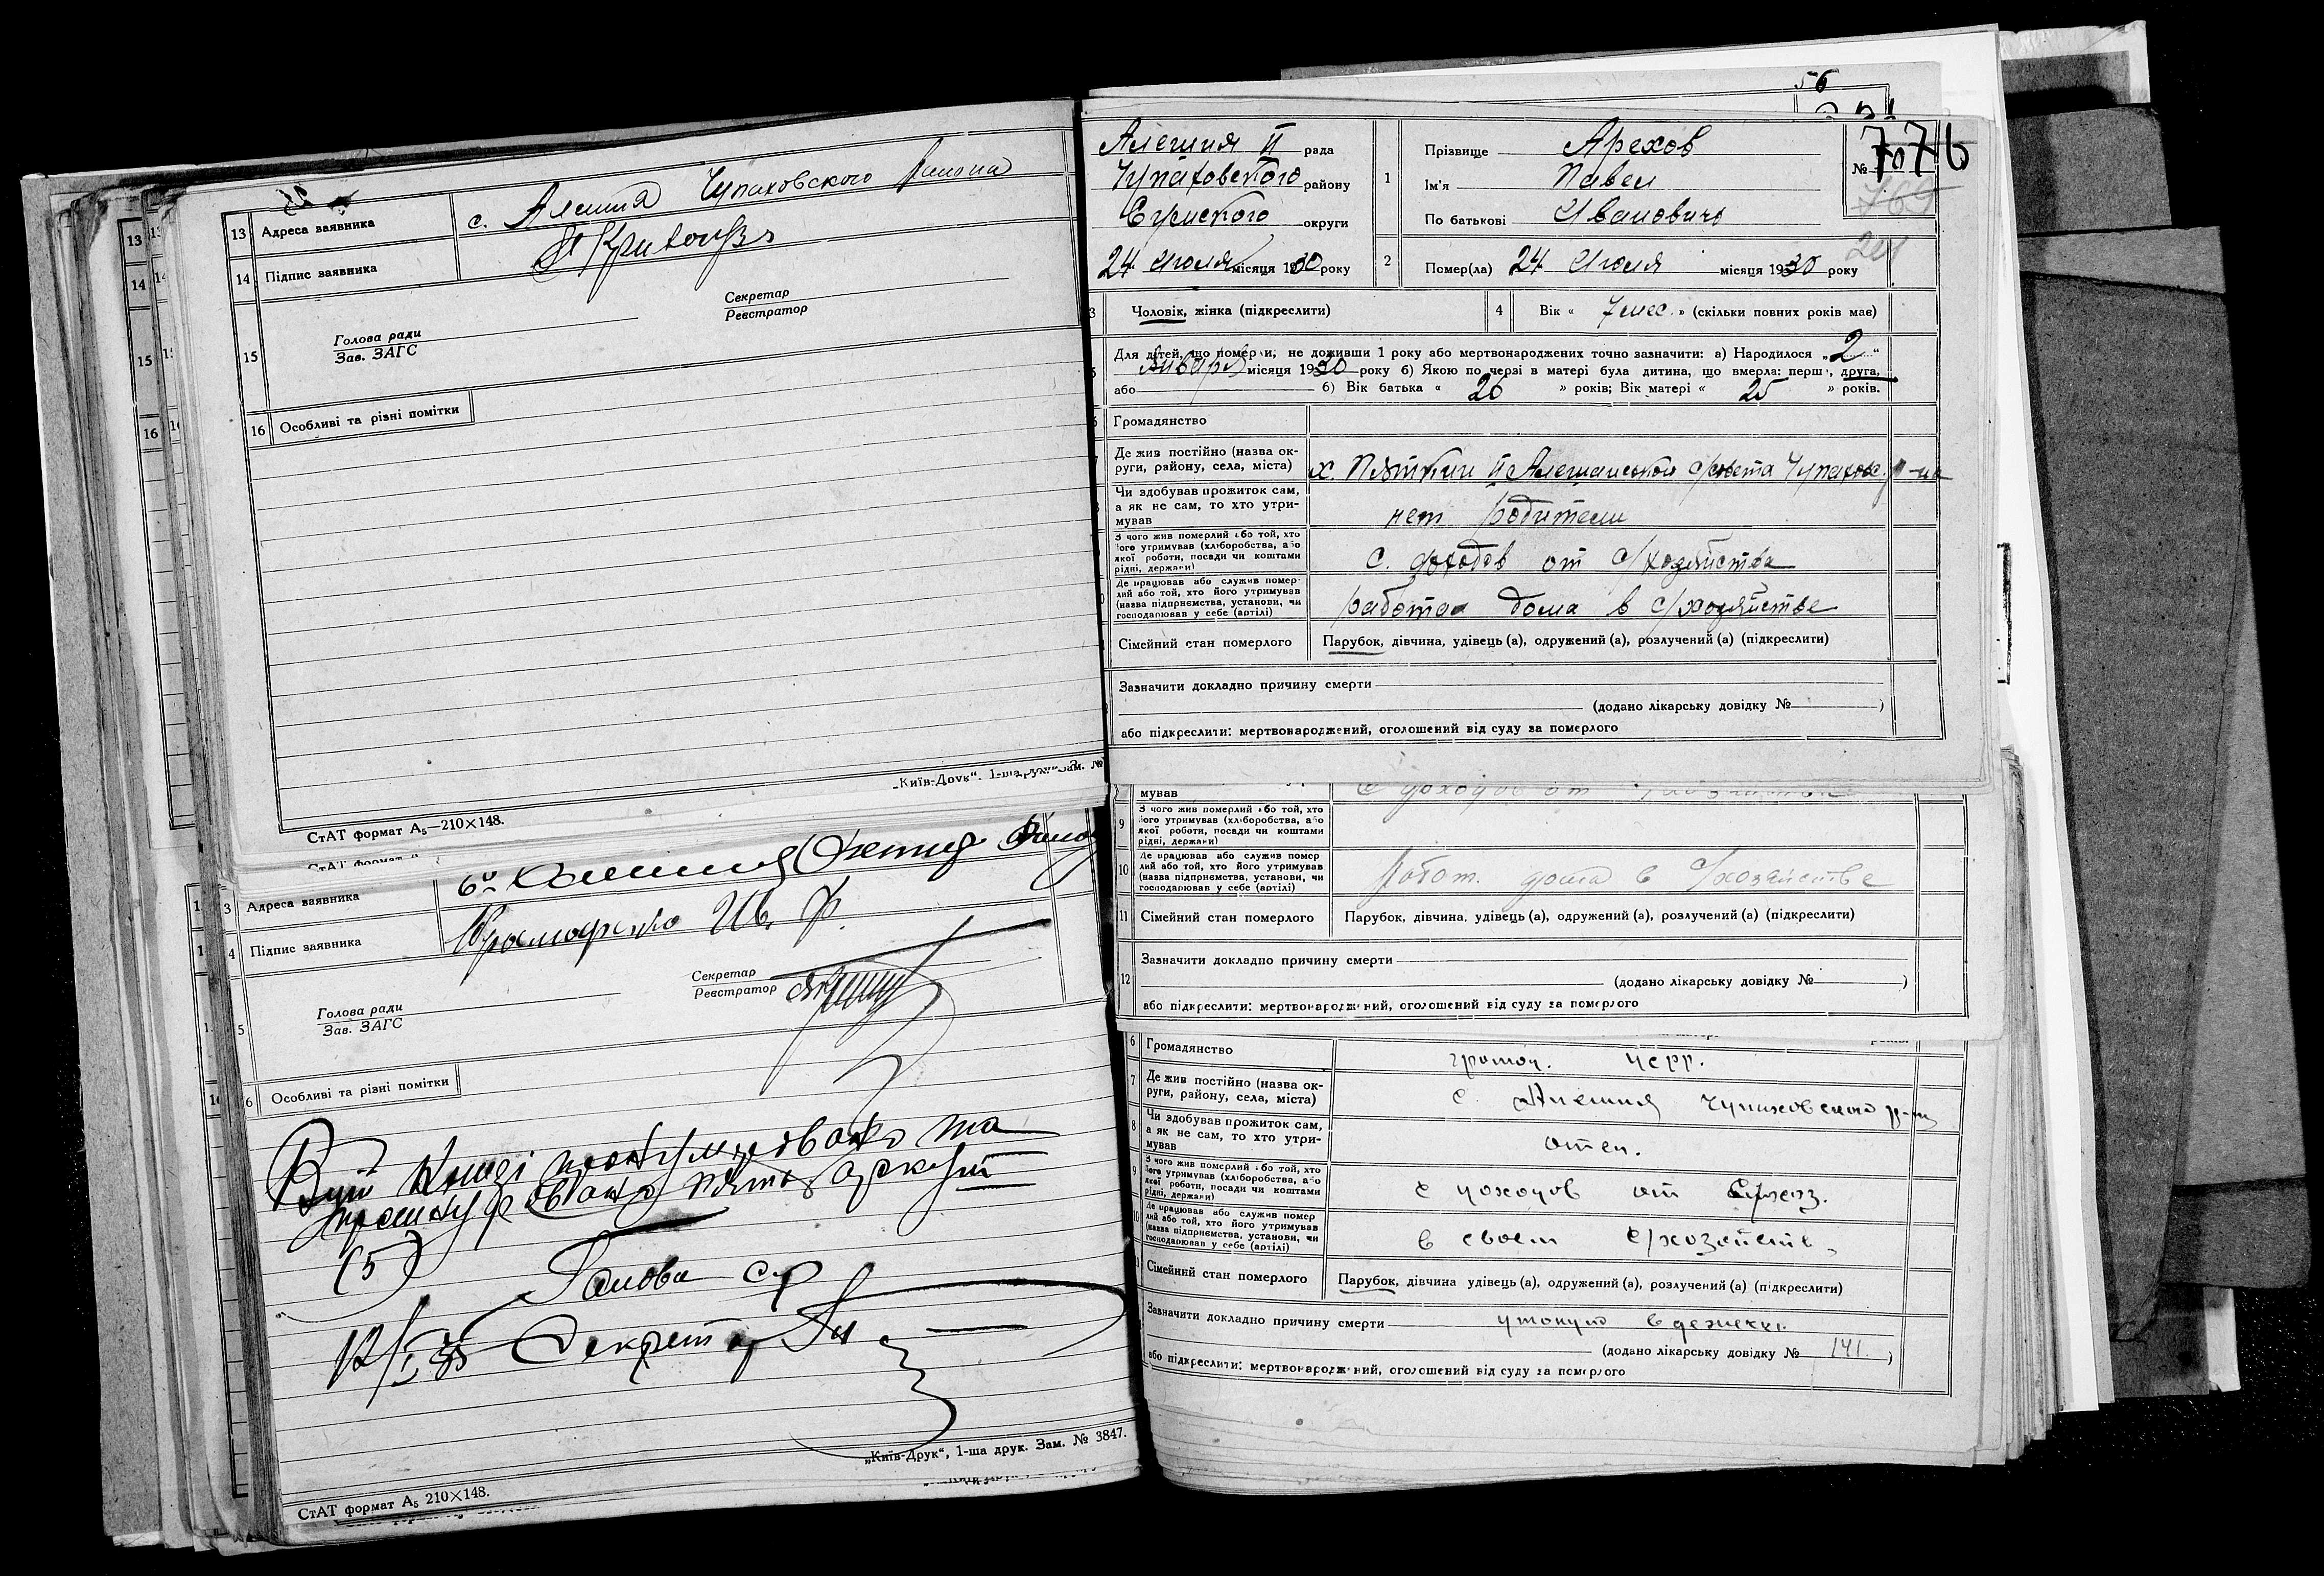 13 Адреса заявника с. Алешня Чупаховского района
14 Підпис заявника
15
Секретар
Реєстратор
Голова ради
Зав. ЗАГС
16 Особливі та різні помітки
„Київ-Друк“, 1-ша друк. Зам. №
СтАТ формат А₅—210×148.
3 Адреса заявника
4 Підпис заявника Ив. Ф.
Секретар
Реєстратор
5
Голова ради
Зав. ЗАГС
6 Особливі та різні помітки
Вцій Книзі пронумеровано та
прошнуровано пять аркуш
(5)
Голова с/р
Секретар
„Київ-Друк“, 1-ша друк. Зам. № 3847.
СтАТ формат А₅ 210×148.
56
Алешня II рада
Чупаховского району
Сумского округи
24 Июля місяця 1930 року
1 Прізвище Арехов
Ім'я Павел
По батькові Иванович
№ 776
769
2 Помер(ла) 24 Июля місяця 1930 року
3 Чоловік, жінка (підкреслити)
4 Вік « 7 мес. » (скільки повних років має)
Для дітей, що померли, не доживши 1 року або мертвонароджених точно зазначити: а) Народилося „ 2 “
Января місяця 1930 року б) Якою по черзі в матері була дитина, що вмерла: перша, друга,
або б) Вік батька « 26 » років; Вік матері « 25 » років.
Громадянство
Де жив постійно (назва округи, району, села, міста) х. II Алешанской с/совета Чупахов. р-на
Чи здобував прожиток сам,
а як не сам, то хто утри-
мував нет родители
З чого жив померлий або той, хто
його утримував (хліборобства, або
якої роботи, посади чи коштами
рідні, держави) с. доходов от с/хозяйства
Де працював або служив помер-
лий або той, хто його утримував
(назва підприємства, установи, чи
господарював у себе (артілі) работа дома в с/хозяйстве
Сімейний стан померлого Парубок, дівчина, удівець (а), одружений (а), розлучений (а) (підкреслити)
Зазначити докладно причину смерти
(додано лікарську довідку № )
або підкреслити: мертвонароджений, оголошений від суду за померлого
мував с доходов от
9 З чого жив померлий або той, хто
його утримував (хліборобства, або
якої роботи, посади чи коштами
рідні, держави)
10 Де працював або служив помер
лий або той, хто його утримував
(назва підприємства, установи, чи
господарював у себе (артілі) работ. дома в с/хозяйстве
11 Сімейний стан померлого Парубок, дівчина, удівець (а), одружений (а), розлучений (а) (підкреслити)
12 Зазначити докладно причину смерти
(додано лікарську довідку № )
або підкреслити: мертвонароджений, оголошений від суду за померлого
6 Громадянство
7 Де жив постійно (назва ок-
руги, району, села, міста) с. Алешня Чупаховского р-на
8 Чи здобував прожиток сам,
а як не сам, то хто утри-
мував отец.
9 З чого жив померлий або той, хто
його утримував (хліборобства, або
якої роботи, посади чи коштами
рідні, держави) с доходов от с/хоз.
10 Де працював або служив помер
лий або той, хто його утримував
(назва підприємства, установи, чи
господарював у себе (артілі) в своем с/хозяйств.
Сімейний стан померлого Парубок, дівчина удівець (а), одружений (а), розлучений (а) (підкреслити)
Зазначити докладно причину смерти утонул
(додано лікарську довідку № 141. )
або підкреслити: мертвонароджений, оголошений від суду за померлого